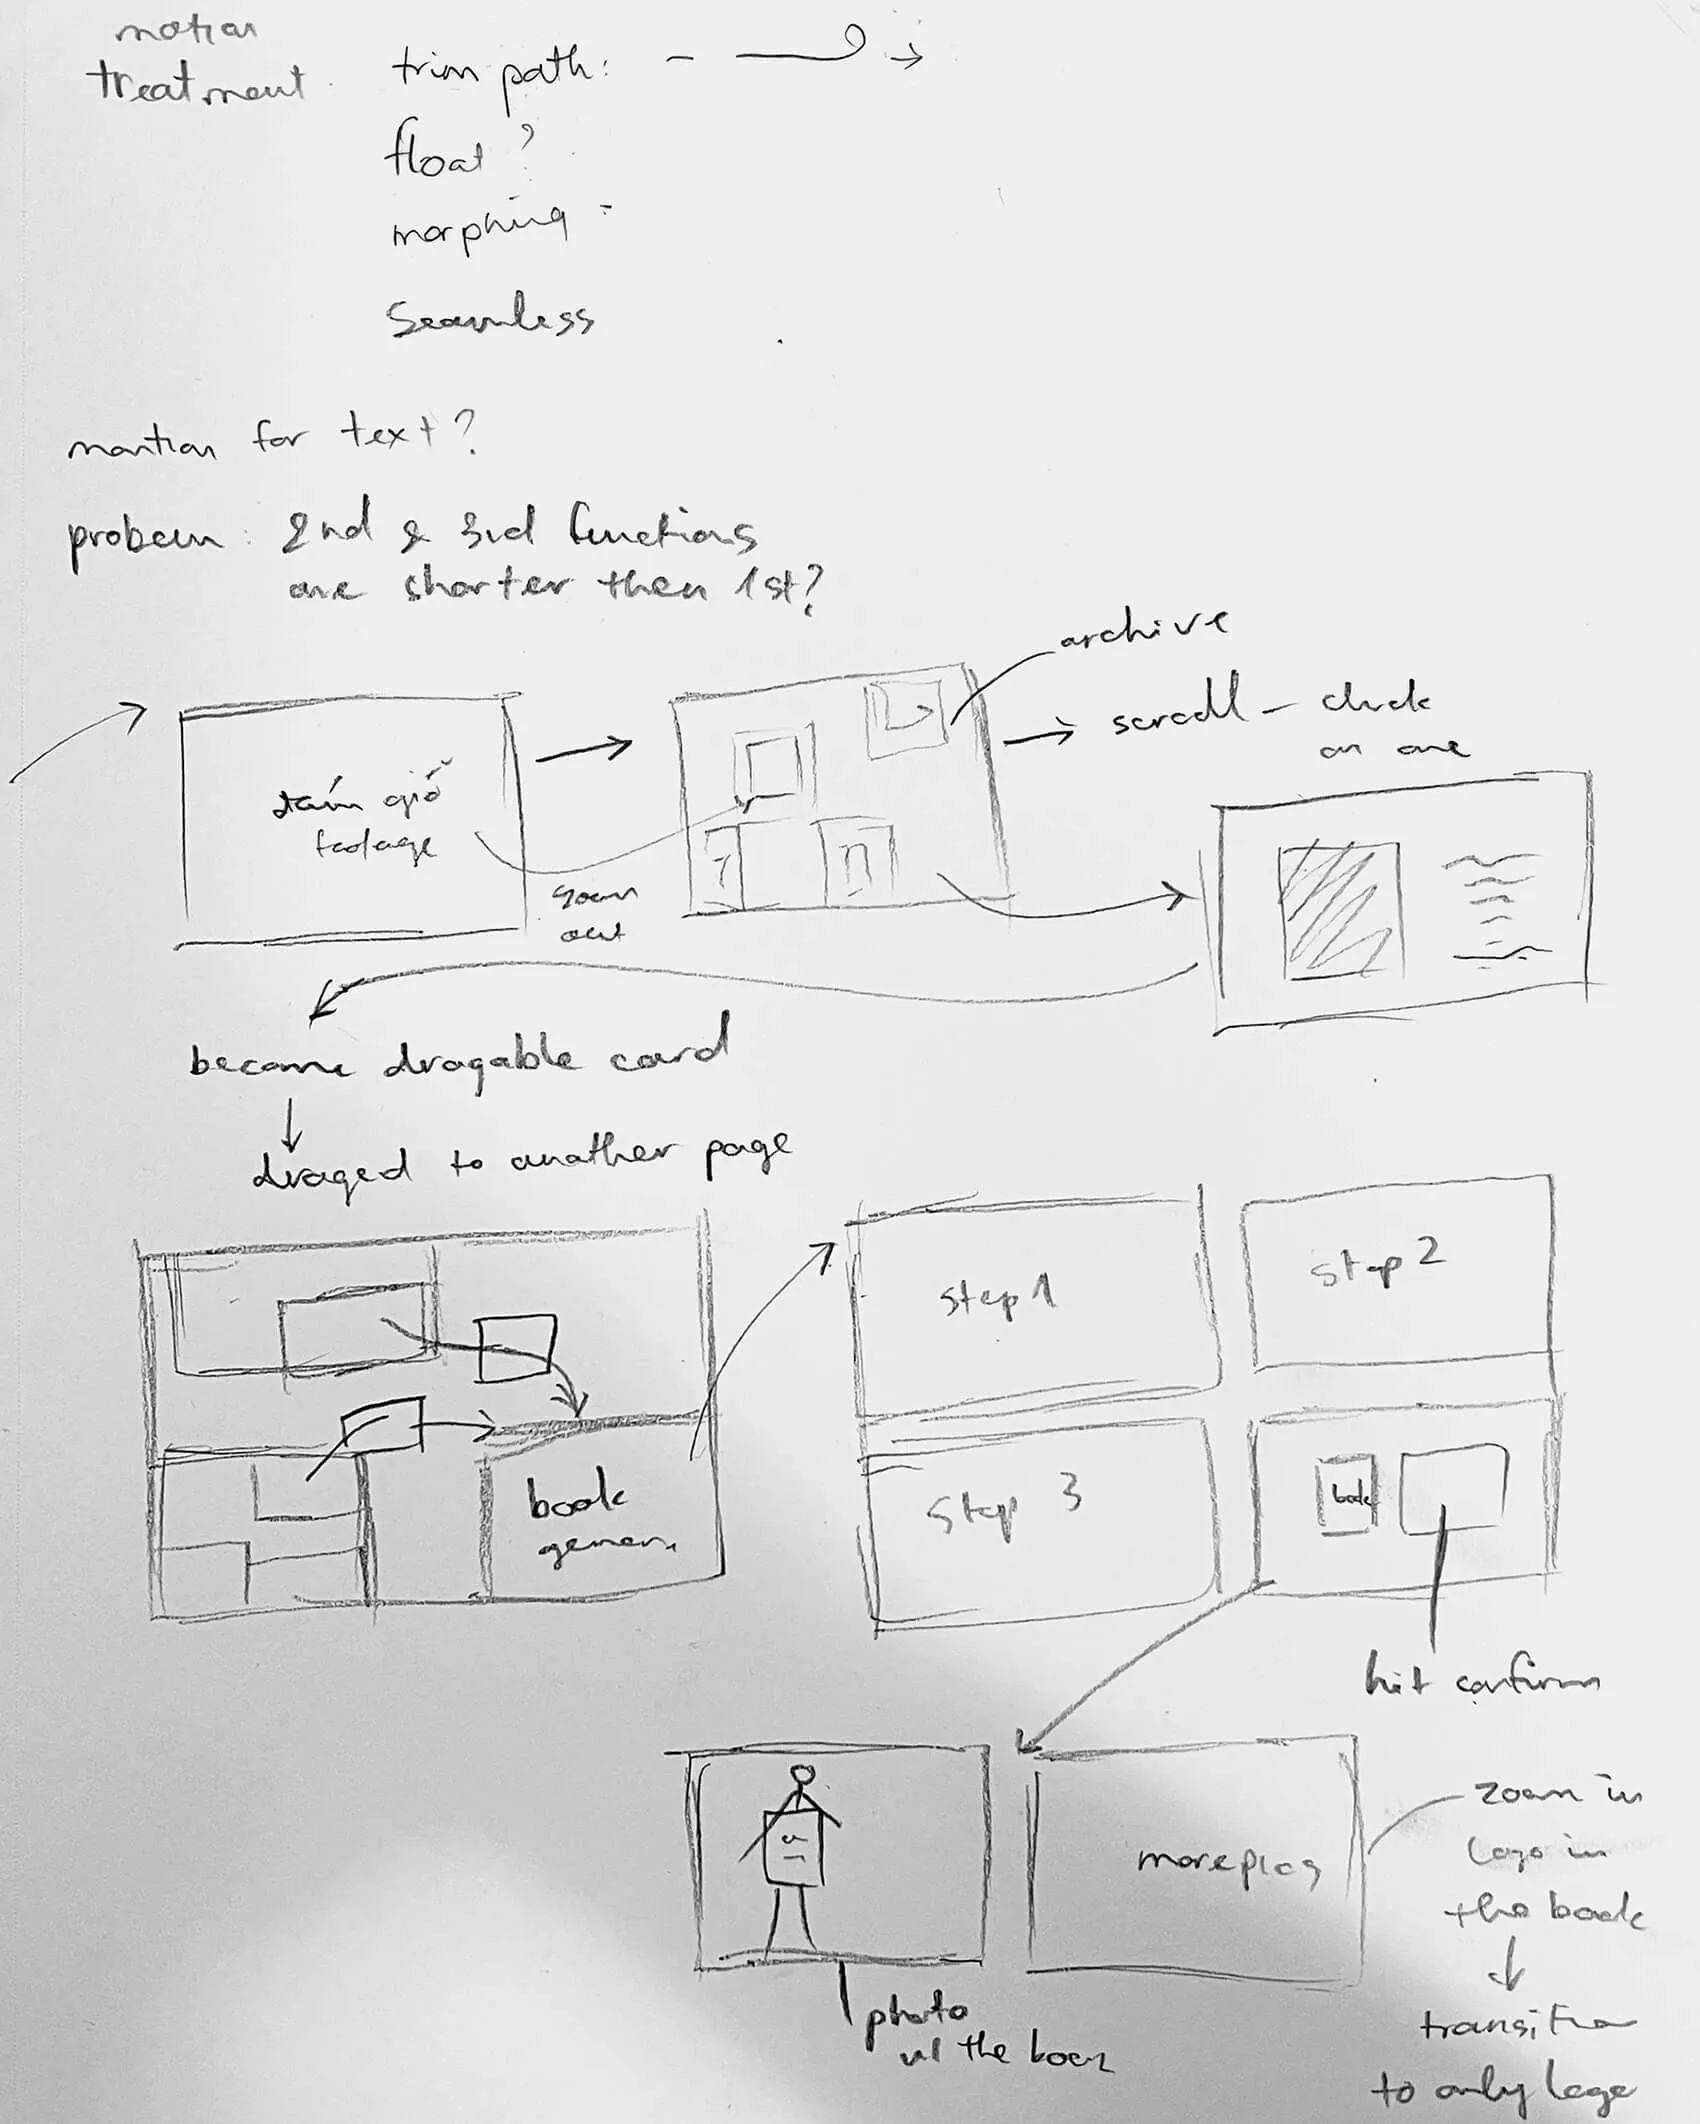 motion
treatment
trim path:
float ?
morphing
Seamless
motion for text?
problem: 2nd & 3rd functions
are shorter then 1st?
archive
scroll - click
on one
đám giỗ
footage
zoom
out
become dragable card
draged to another page
step 1
step 2
book
step 3
book
hit confirm
zoom in
logo in
the book
photo
w/ the book
transition
to only logo